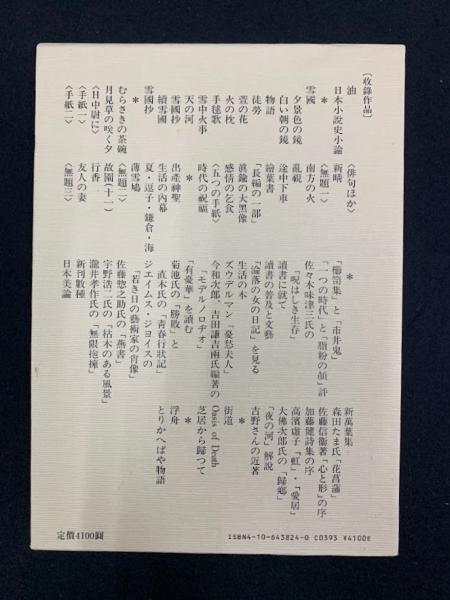 〔収錄作品〕
油
日本小說史小論
＊
雪國
夕景色の鏡
白い朝の鏡
物語
徒勞
萱の花
火の枕
手毬歌
雪中火事
天の河
雪國抄
續雪國
雪國抄
＊
むらさきの茶碗
月見草の咲く夕
〈日中尉に〉
〈手紙一〉
〈手紙二〉
〈俳句ほか〉
新晴
〈無題一〉
南方の火
亂視
途中下車
繪葉書
「長編の一部」
眞鍮の大黑像
感情の乞食
〈五つの手紙〉
時代の祝福
＊
出產神聖
生活の內幕
夏・逗子・鎌倉・海
薄雪鳩
〈無題二〉
故園(十一)
行香
友人の妻
〈無題三〉
＊
「櫛笥集」と「市井鬼」
「一つの時代」と「脂粉の顏」評
佐々木味津三氏の
「呪はしき生存」
讀書に就て
讀書の普及と文藝
「淪落の女の日記」を見る
生活の本
ズウデルマン「憂愁夫人」
今和次郎、吉田謙吉兩氏編著の
「モデルノロヂオ」
「有憂華」を讀む
菊池氏の「勝敗」と
直木氏の「青春行狀記」
ジエイムス・ジョイスの
「若き日の藝術家の肖像」
佐藤惣之助氏の「燕書」
宇野浩二氏の「枯木のある風景」
瀧井孝作氏の「無限抱擁」
新刊數種
日本美論
新萬葉集
森田たま氏「花菖蒲」
佐藤信衞著「心と形」の序
加藤健詩集の序
高濱虛子「虹」・「愛居」
大佛次郎氏の「歸鄕」
「夜の河」解說
吉野さんの近著
＊
街道
Oasis of Death
芝居から歸つて
＊
浮舟
とりかへばや物語
定價4100圓
ISBN4-10-643824-0 C0393 ¥4100E